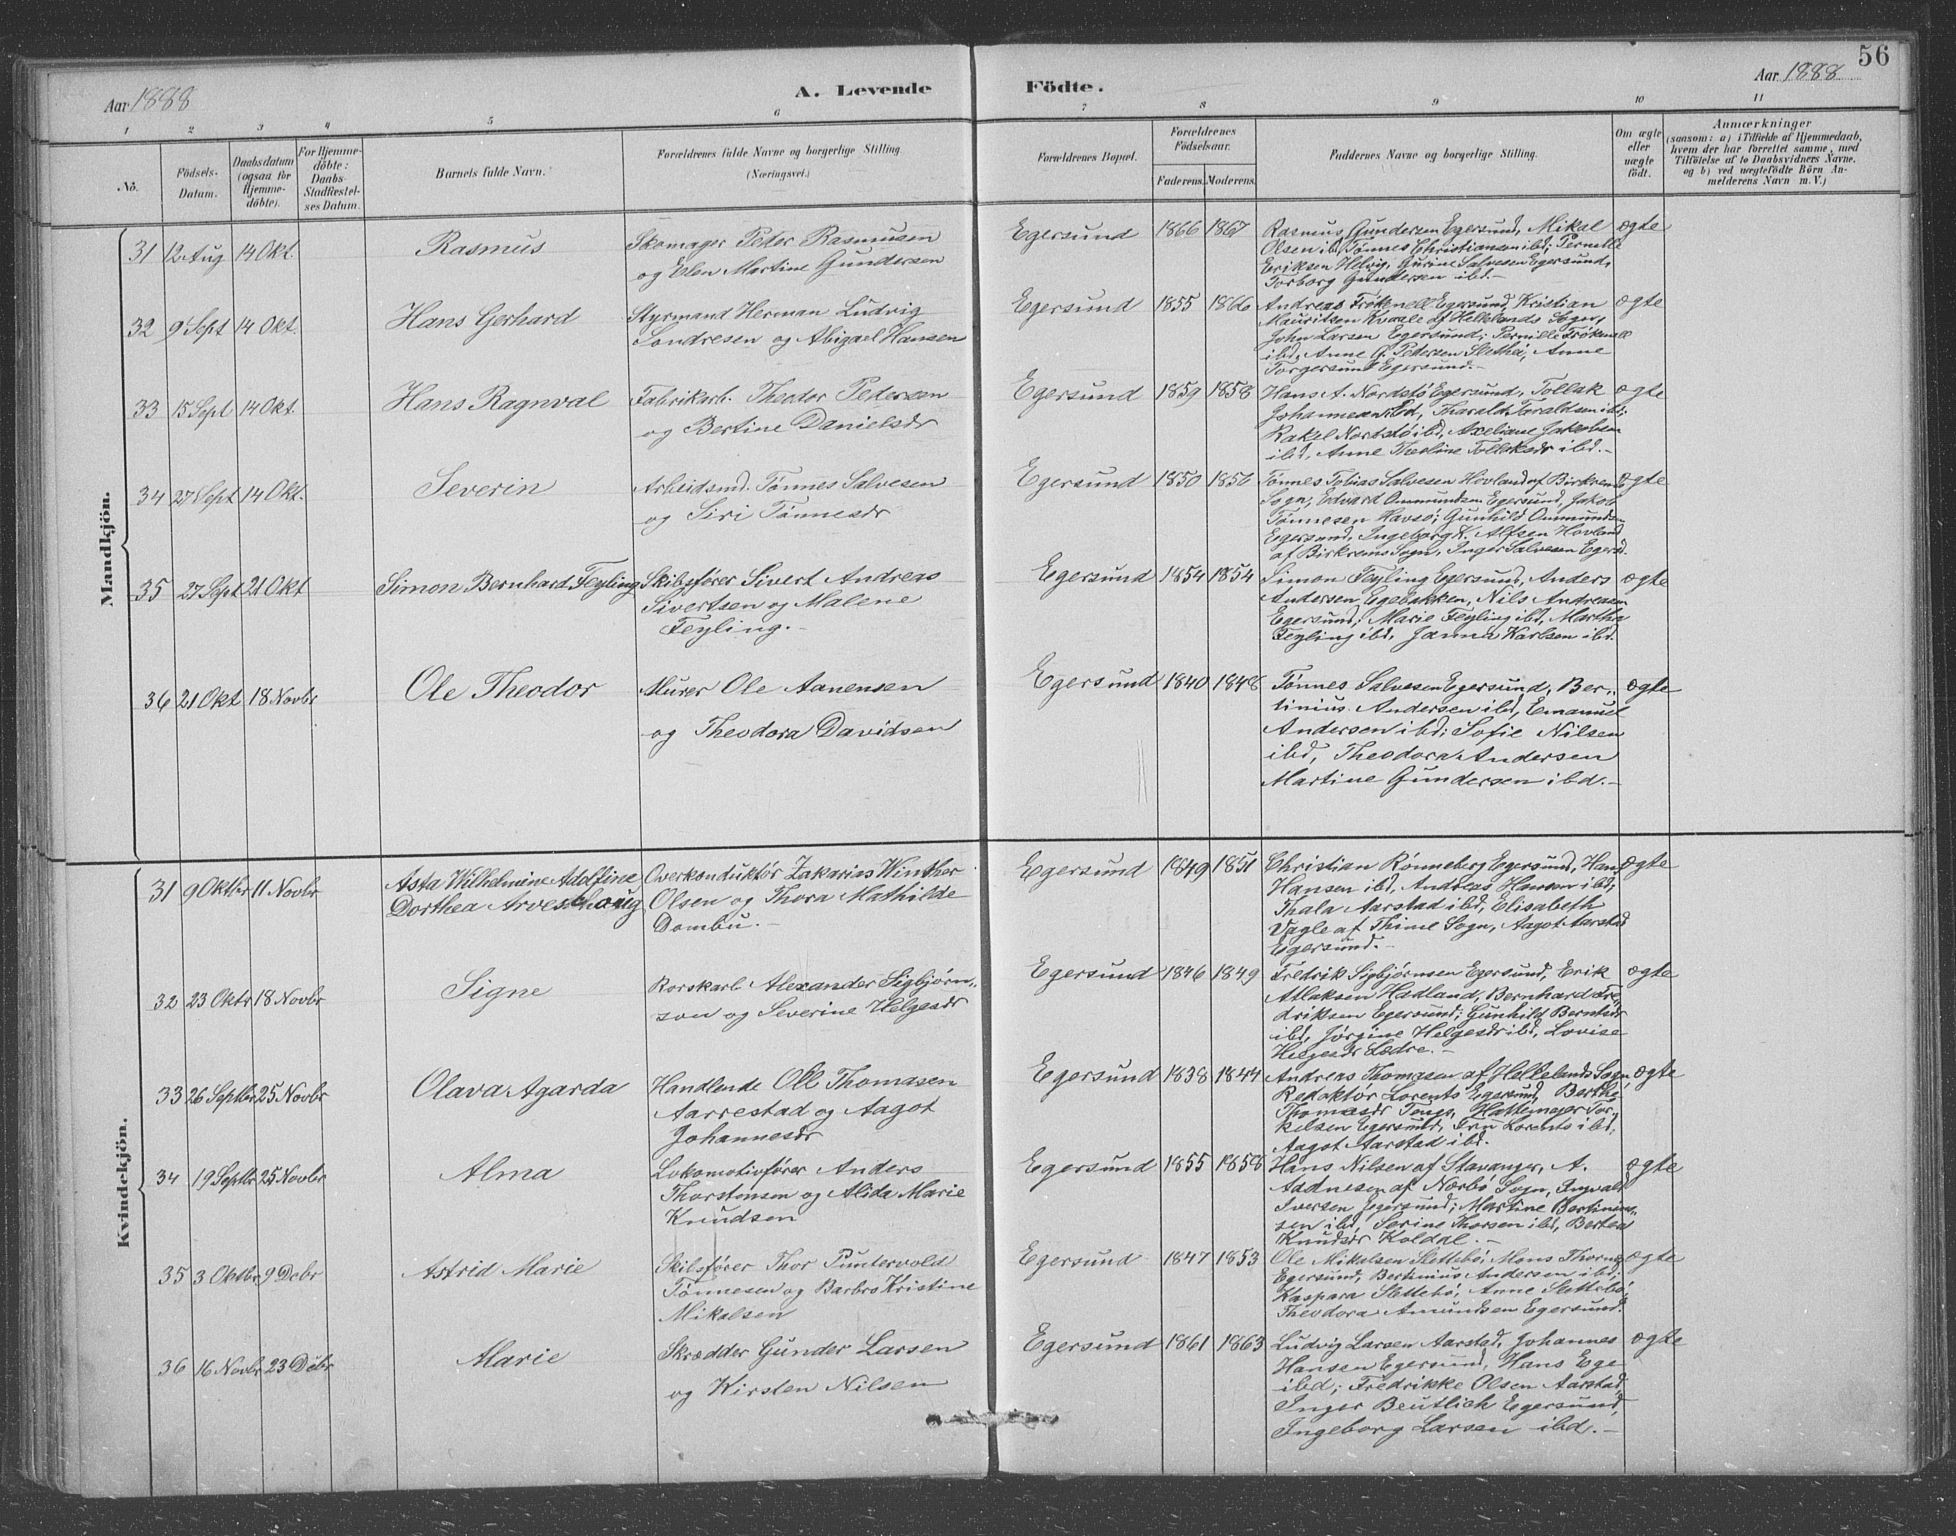 56
Aar 1888 A. Levende Födte. Aar 1888
1 2 3 4 5 6 7 8 9 10 11
No.
Födsels-Datum.
Daabsdatum (ogsaa for Hjemme-döbte).
For Hjemme-döbte: Daabs-Stadfæstel-ses Datum.
Barnets fulde Navn.
Forældrenes fulde Navne og borgerlige Stilling (Næringsvei.)
Forældrenes Bopæl.
Forældrenes Födselsaar.
Faderens. Moderens.
Faddernes Navne og borgerlige Stilling.
Om ægte eller uægte födt.
Anmærkninger
(saasom: a) i Tilfælde af Hjemmedaab,
hvem der har forrettet samme, med
Tilföielse af to Daabsvidners Navne.
og b) ved uægtefödte Börn An-
melderens Navn m. V.)
Mandkjön.
31 12 Aug 14 Okt. Rasmus
Skomager Peter Rasmusen
og Elen Martine Gundersen
Egersund 1866 1867
Rasmus Gundersen Egersund, Mikal
Olsen ibd, Tønnes Christiansen ibd; Pernille
Eriksen Helvig, Gurine Salvesen Egersund,
Torborg Gundersen ibd.-
ægte
32 9 Sept 14 Okt. Hans Gerhard
Styrmand Herman Ludvig
Sondresen og Abigael Hansen
Egersund 1855 1866
Andreas Frøknell Egersund, Kristian
Mauritsen Kvaale af Hellelands Sogn,
John Larsen Egersund; Pernille Frøknell
ibd, Anne G. Petersen Slethei, Anne
Torgersund Egersund.-
ægte
33 15 Sept 14 Okt. Hans Ragnval
Fabrikarb. Theodor Petersen
og Bertine Danielsdr
Egersund 1859 1858
Hans A. Nordstø Egersund, Tollak
Johannesen ibd, Tharald Toraldsen ibd;
Rakel Nortstø ibd, Axeliane Jakobsen
ibd, Anne Theoline Tollaksdr ibd.-
ægte
34 27 Sept 14 Okt. Severin
Arbeidsmd. Tønnes Salvesen
og Siri Tønnesdr
Egersund 1850 1856
Tønnes Tobias Salvesen Hovland af Birkrems
Sogn, Edvard Ommundsen Egersund, Jakob
Tønnesen Havsø; Gunhild Ommundsen
Egersund, Ingeborg K. Alfsen Hovland
af Birkrems Sogn, Inger Salvesen Egersd.
ægte
35 27 Sept 21 Okt Simon Bernhard Feyling
Skibsfører Sivert Andreas
Sivertsen og Malene
Feyling.-
Egersund 1854 1854
Simon Feyling Egersund, Anders
Andersen Egebakken, Nils Andreasen
Egersund; Marie Feyling ibd, Martha
Feyling ibd, Janna Karlsen ibd.
ægte
36 21 Okt 18 Novbr Ole Theodor
Murer Ole Aanensen
og Theodora Davidsen
Egersund 1840 1848
Tønnes Salvesen Egersund, Ber-
tinius Andersen ibd, Emanuel
Andersen ibd; Sofie Nilsen
ibd, Theodora Andersen
Martine Gundersen ibd.-
ægte
Kvindekjön.
31 9 Oktbr 11 Novbr
Asta Wilhelmine Adolfine
Dorthea Arveschoug
Overkonduktør Zakarias Winther
Olsen og Thora Mathilde
Dombu.-
Egersund 1849 1851
Christian Rønneberg Egersund, Hans
Hansen ibd, Andreas Hansen ibd;
Thala Aarstad ibd, Elisabeth
Vagle af Thime Sogn, Aagot Aarstad
Egersund.-
ægte
32 23 Oktr 18 Novbr Signe
Alexander Sigbjørn-
son og Severine Helgesdr
Egersund 1846 1849
Fredrik Sigbjørnsen Egersund, Erik
Atlaksen Hadland, Bernhard Fre-
driksen Egersund; Gunhild Berntsdr
ibd, Jørgine Helgesdr ibd, Lovise
Helgesdr Lædre.-
ægte
33 26 Septbr 25 Novbr Olava Agarda
Handlende Oll Thomasen
Aarrestad og Aagot
Johannesdr
Egersund 1838 1844
Andreas Thomasen af Hellelands Sogn
Redaktør Lorents Egersund, Berthe
Thomasdr Tengs, Hattemager Tor-
kelsen Egersund, Fru Lorents ibd;
Aagot Aarstad ibd.
ægte
34 19 Septbr 25 Novbr Alma
Lokomotivfører Anders
Thorstensen og Alida Marie
Knudsen
Egersund 1855 1858
Hans Nilsen af Stavanger, A.
Aadnesen af Nærbø Sogn, Ingvald
Iversen Egersund; Martine Bertinius-
sen ibd, Serine Thorsen ibd, Bertea
Knudsdr Koldal.-
ægte
35 3 Oktbr 9 Debr Astrid Marie
Skibsfører Thor Puntervold
Tønnesen og Barbro Kristine
Mikalsen
Egersund 1847 1853
Ole Mikalsen Slettebø, Mons Thorns
Egersund, Bertinius Andersen ibd;
Kaspara Slettebø, Anne Slettebø,
Theodora Amundsen Egersund.
ægte
36 16 Novbr 23 Debr Marie
Skrædder Gunder Larsen
og Kirsten Nilsen
Egersund 1861 1863
Ludvig Larsen Aarstad, Johannes
Hansen Egersund, Hans Ege
ibd; Fredrikke Olsen Aarstad,
Inger Beutlich Egersund,
Ingeborg Larsen ibd.-
ægte